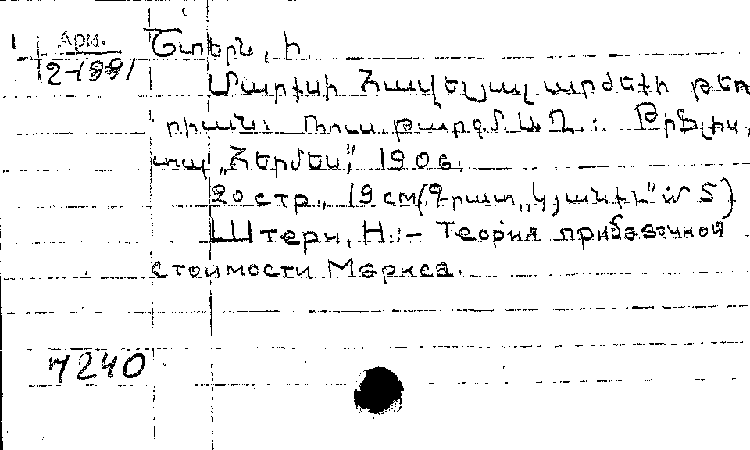 Арм.
2-1991
Շտերն, Ի.
Մարքսի Հավելյալ արժեքի թեո
րիան: Ռուս. թարգմ. Ա.Ղ.: Թիֆլիս,
տպ. „Հերմես", 1906.
20 стр., 19 см (Գրատ. „Կյանք" № 5)
Штерн, Н.:- Теория прибавочной
стоимости Маркса.
7240